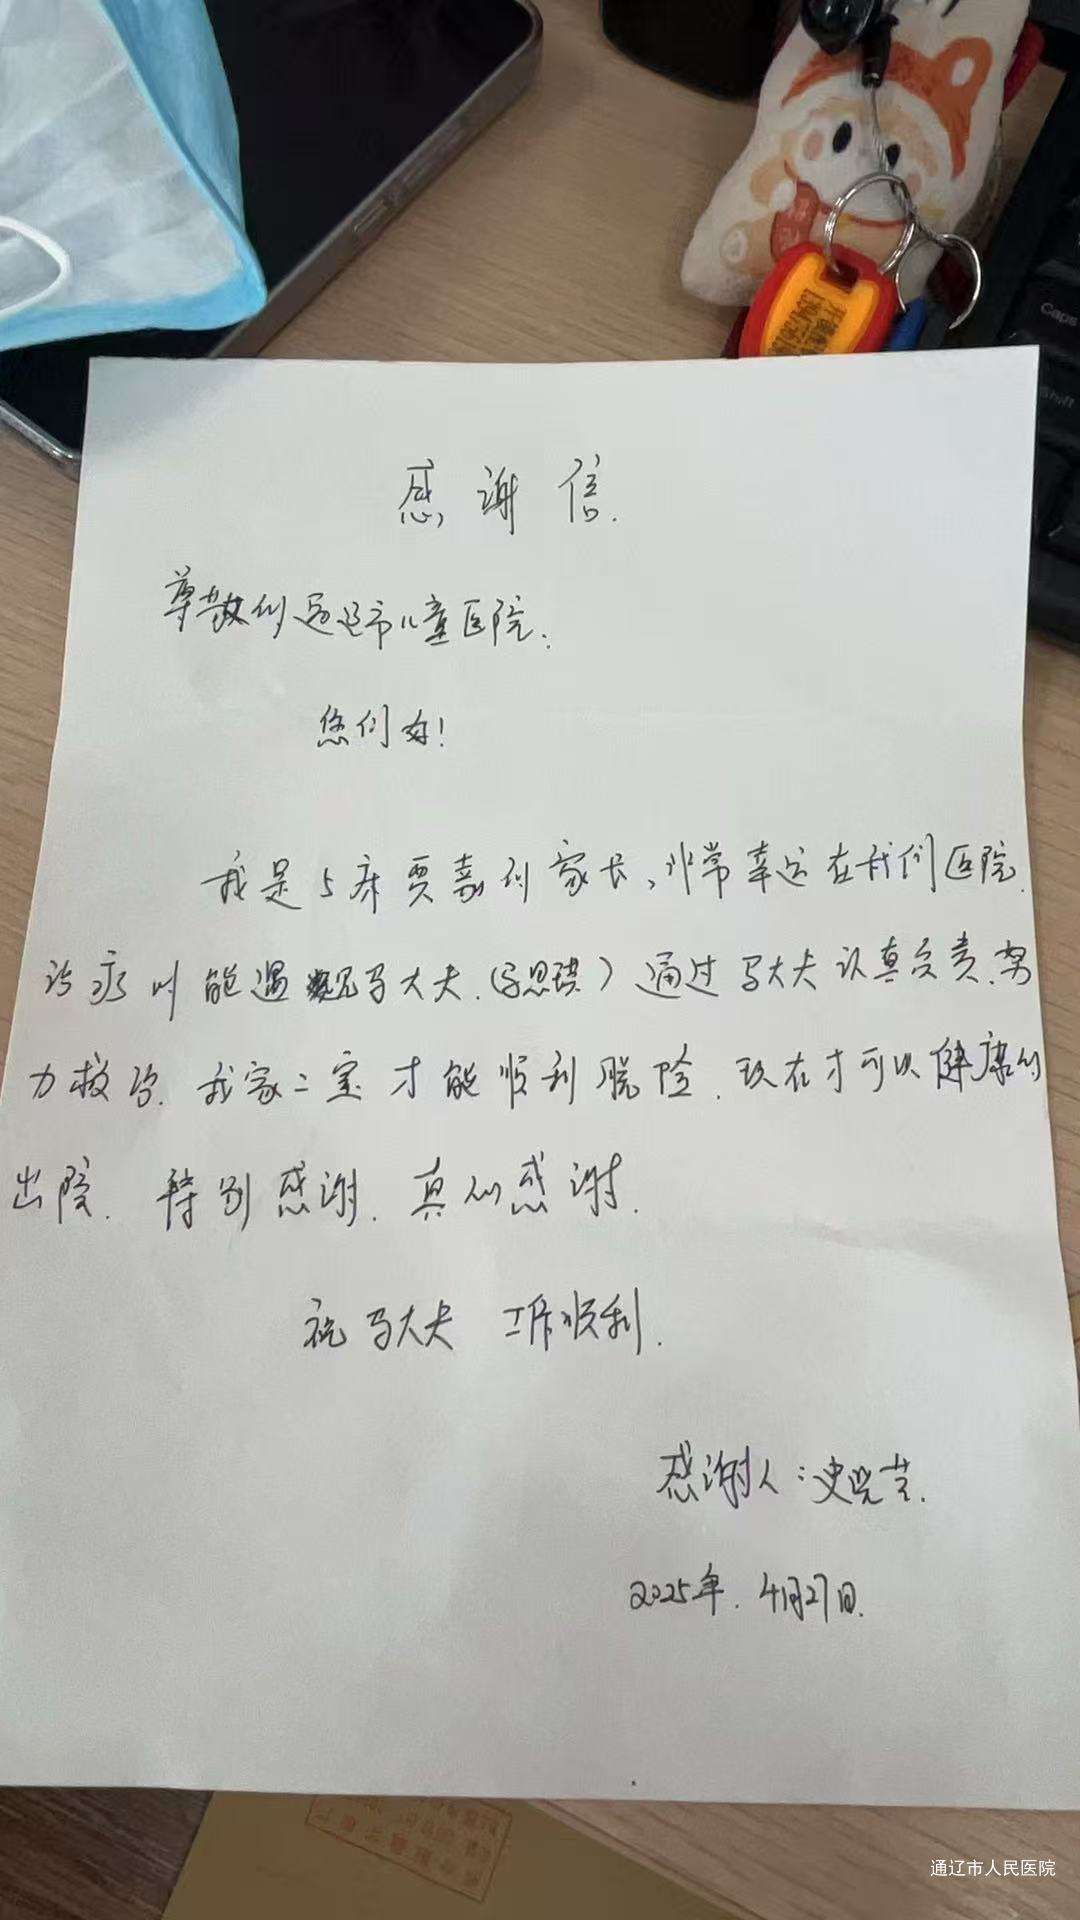 Caps
Shift
感谢信.
尊敬的通辽市儿童医院.
您们好!
我是5床贾嘉的家长,非常幸运在我们医院.
治疗时能遇见马大夫.(马思琪)通过马大夫认真负责.努
力救治.我家二宝才能顺利脱险.现在才可以健康的
出院.特别感谢.真心感谢.
祝马大夫 工作顺利.
感谢人:史晓芸.
2025年.4月27日.
通辽市人民医院